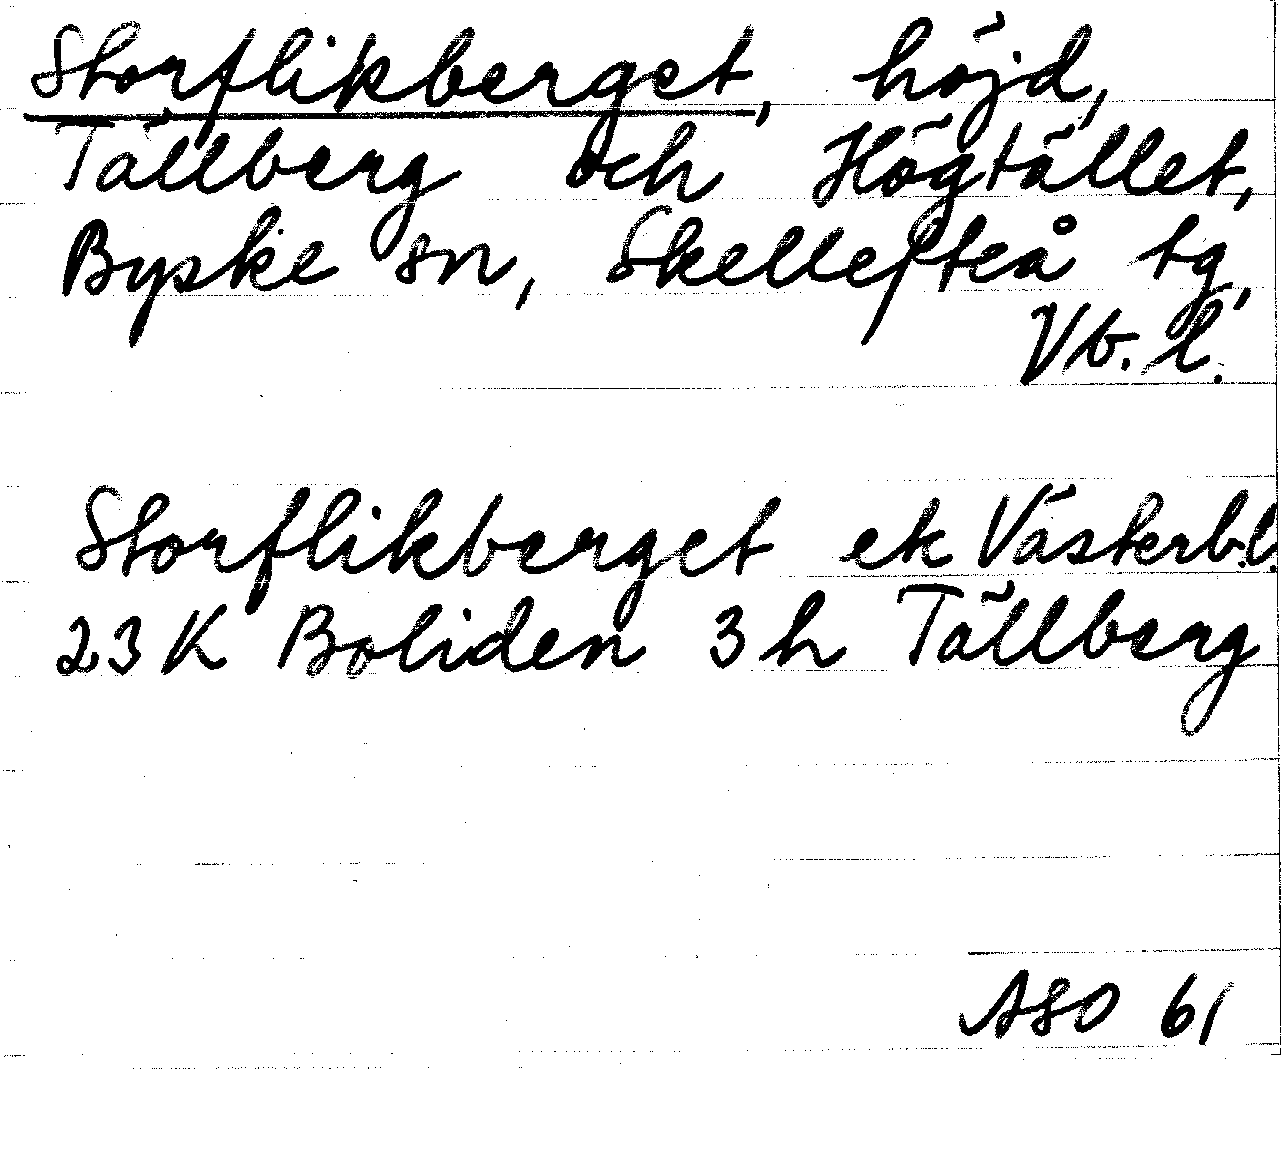 Storflikberget, höjd,
Tällberg och Högtället,
Byske sn, Skellefteå tg,
Vb. l.
Storflikberget ek Västerb.l.
23K Boliden 3h Tällberg
ASO 61